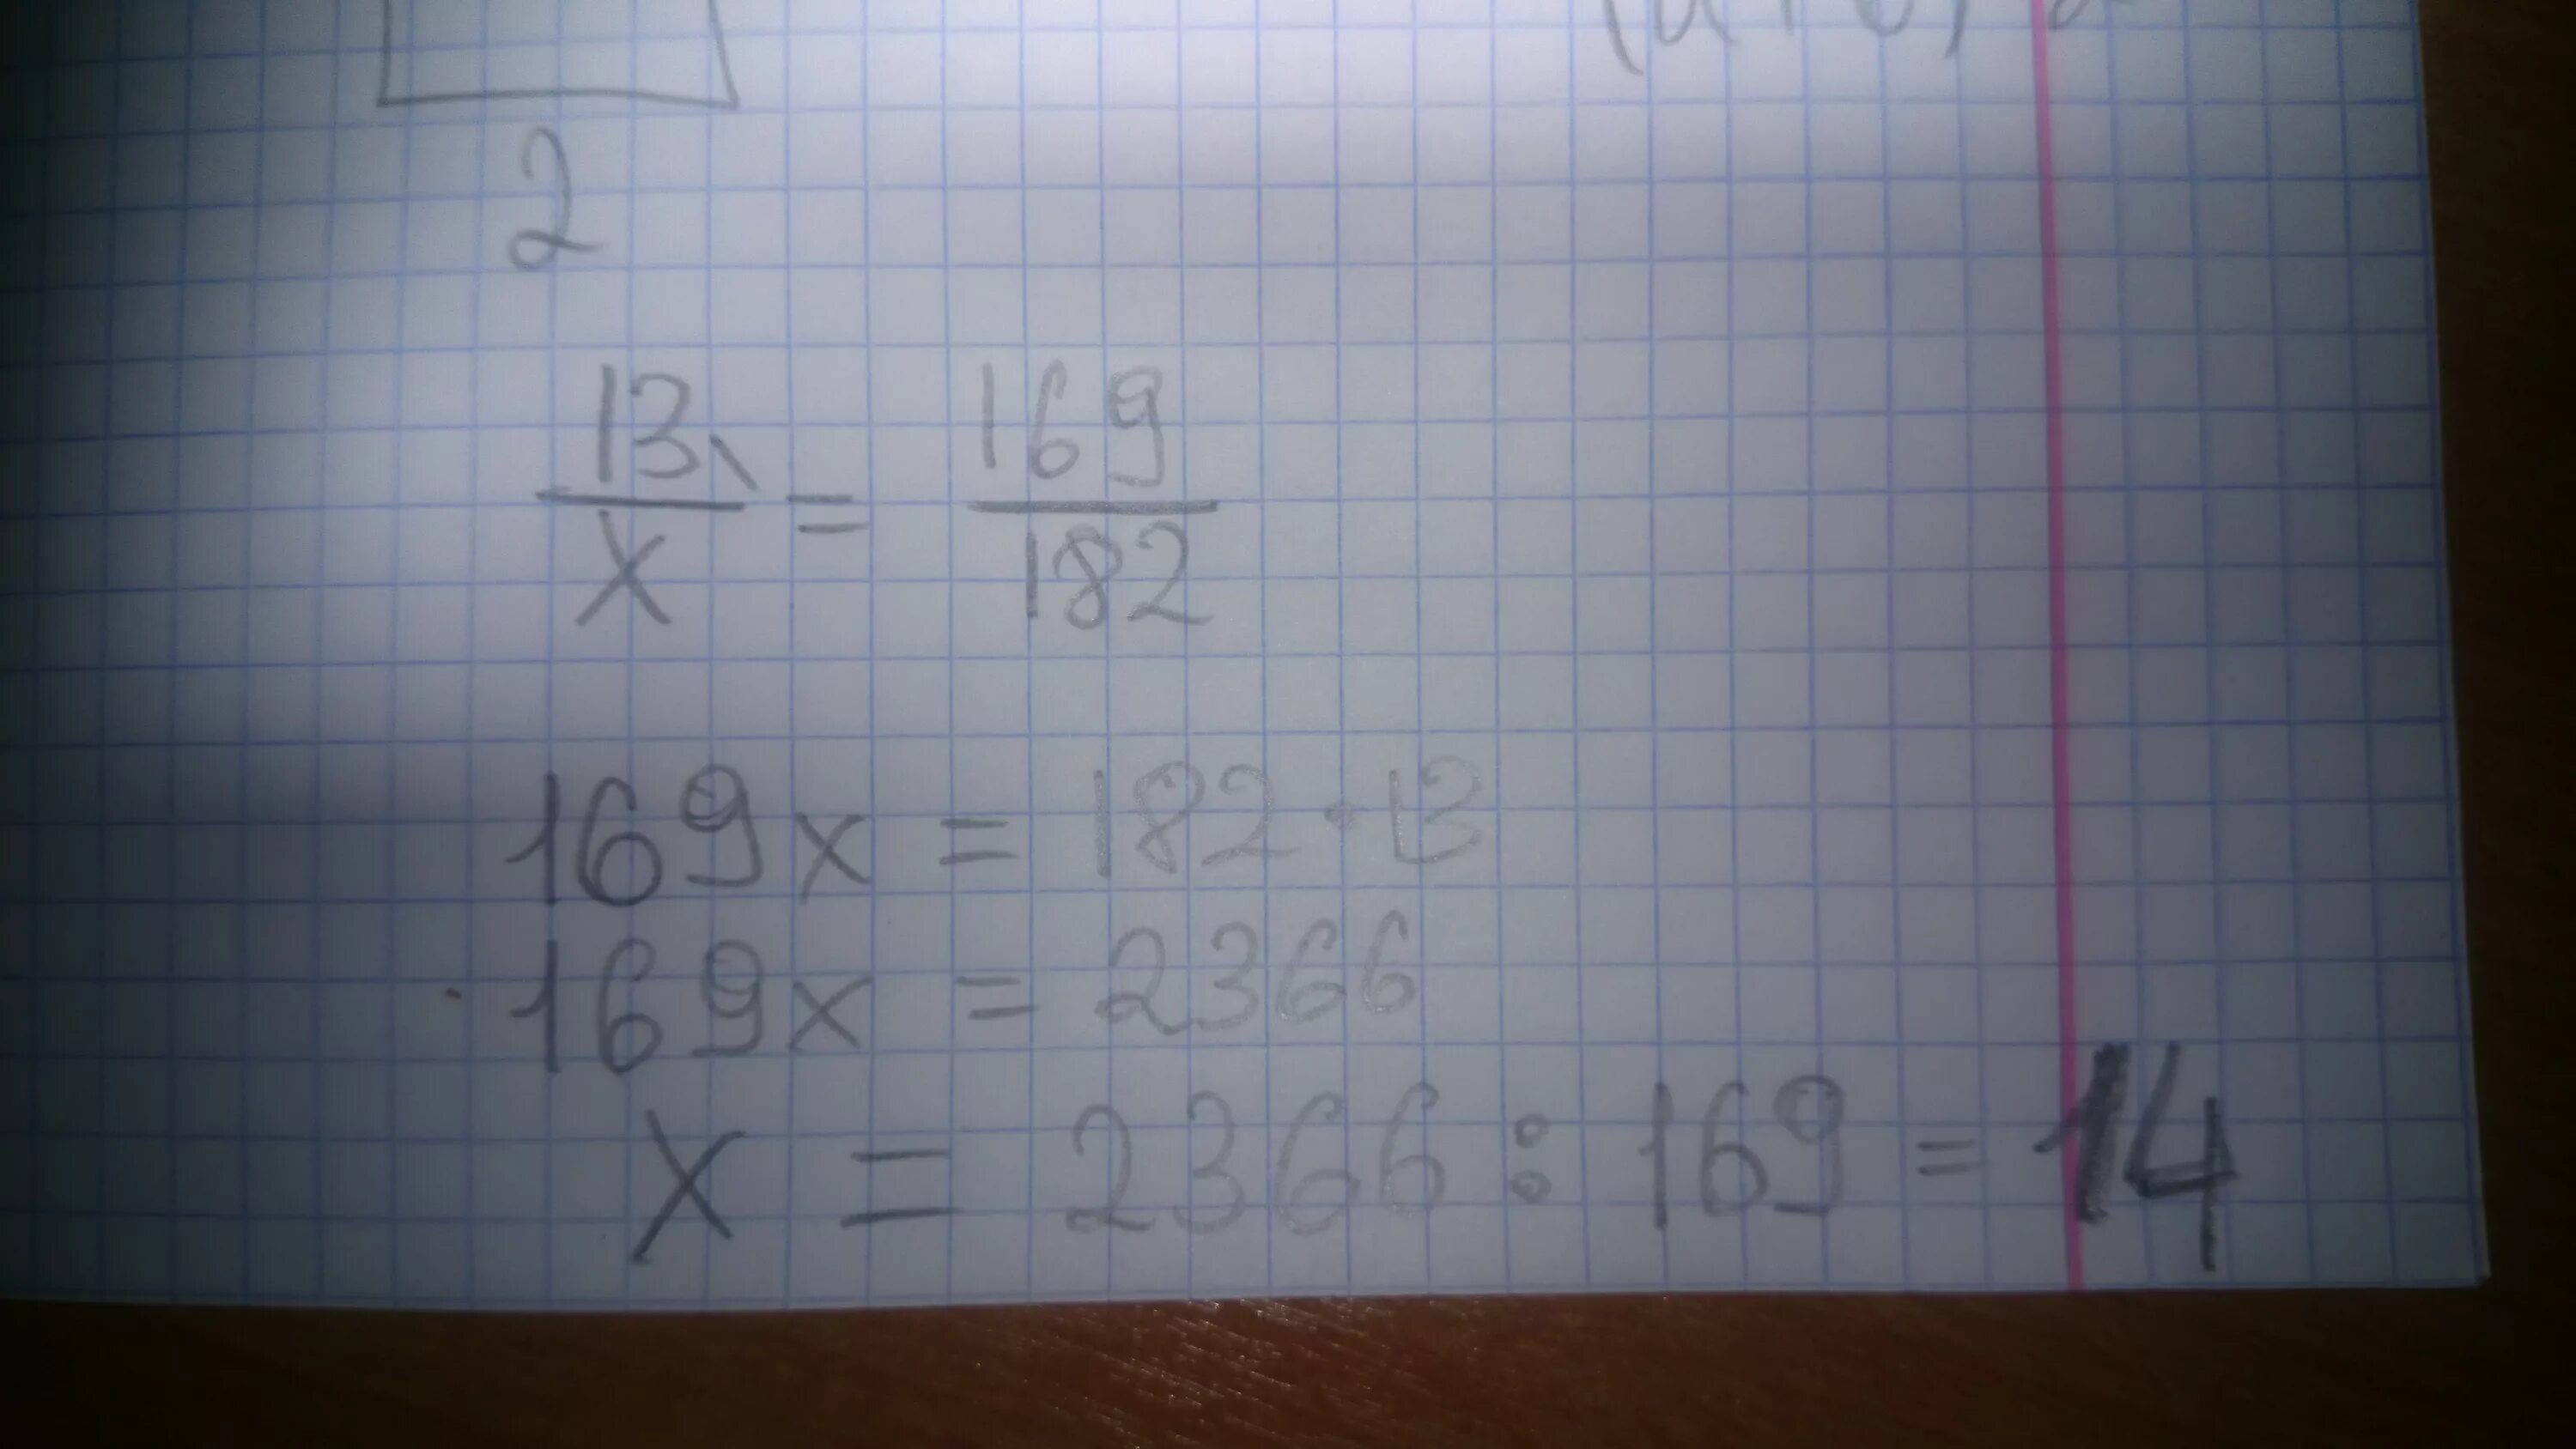 2
13/x = 169/182
169x = 182·13
169x = 2366
x = 2366 : 169 = 14